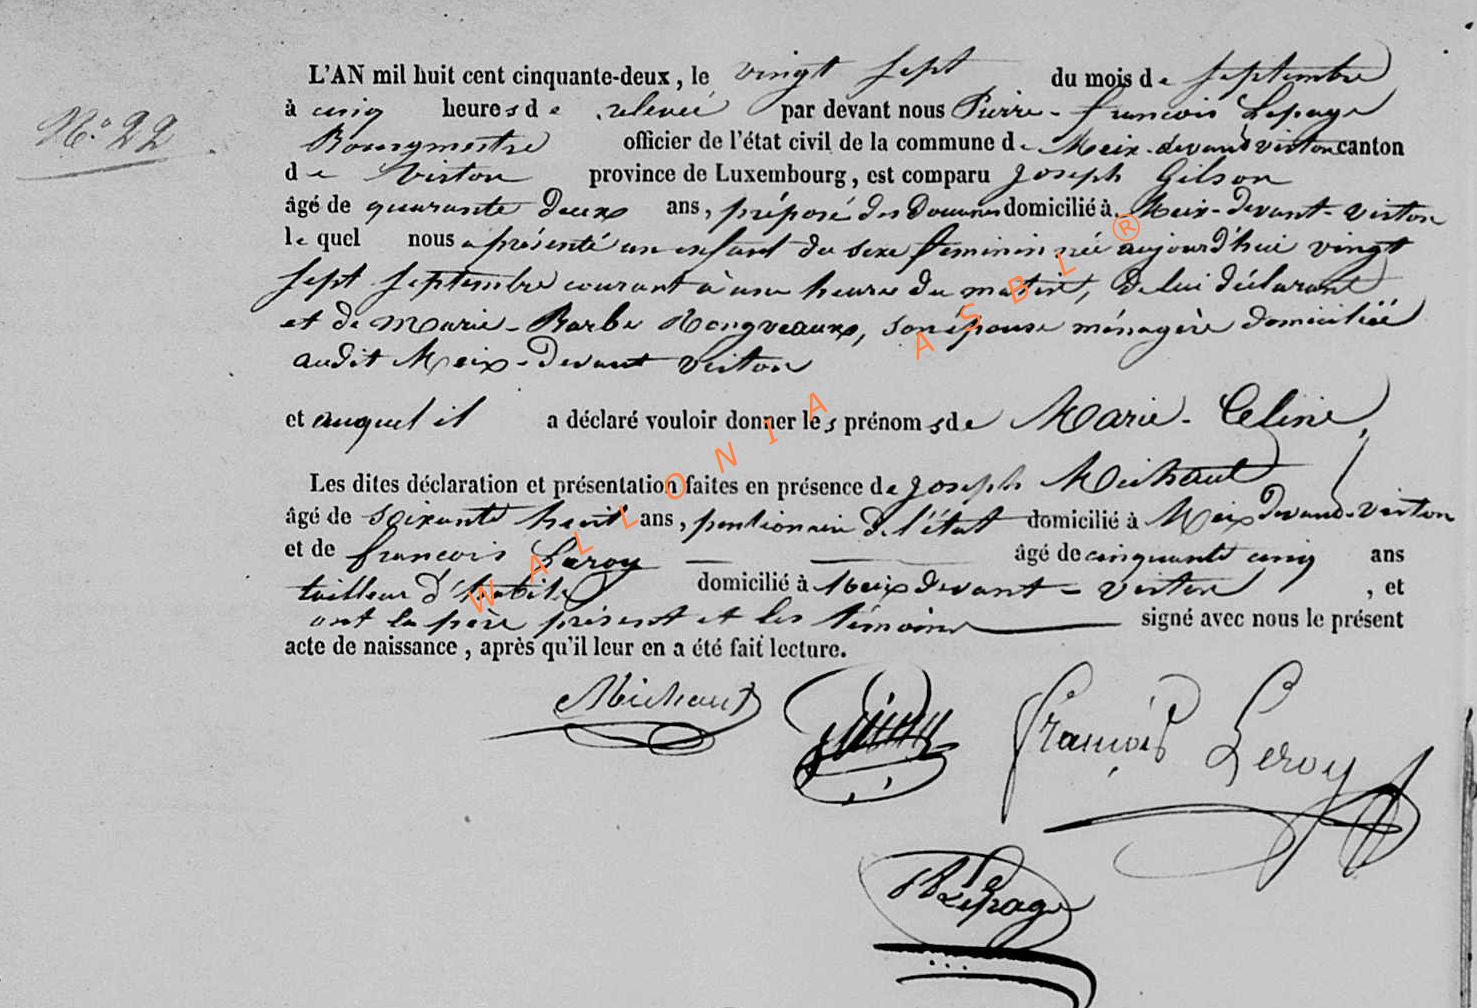 N.o 22
L'AN mil huit cent cinquante-deux, le vingt sept du mois de septembre
à cinq heures de relevée par devant nous Pierre-francois Lepage
Bourgmestre officier de l'état civil de la commune de Meix-devant virton canton
de Virton province de Luxembourg, est comparu Joseph Gilson
âgé de quarante deux ans, préposé des Douanes domicilié à Meix-devant-virton
lequel nous a présenté un enfant du sexe feminin née aujourd'hui vingt
sept septembre courant à une heure du matin, de lui déclarant
et de Marie-Barbe Rongveaux, son épouse ménagère domiciliée
audit Meix-devant virton
et auquel il a déclaré vouloir donner les prénoms de Marie-Celine,
Les dites déclaration et présentation faites en présence de Joseph Michaut
âgé de soixante huit ans, pentionnaire de l'état domicilié à Meix devant-virton
et de francois Leroy âgé de cinquante cinq ans
tailleur d'habits domicilié à Meix devant-virton, et
ont le père présent et les témoins signé avec nous le présent
acte de naissance, après qu'il leur en a été fait lecture.
Michaut François Leroy
Lepage
WALLONIA ASBL ®